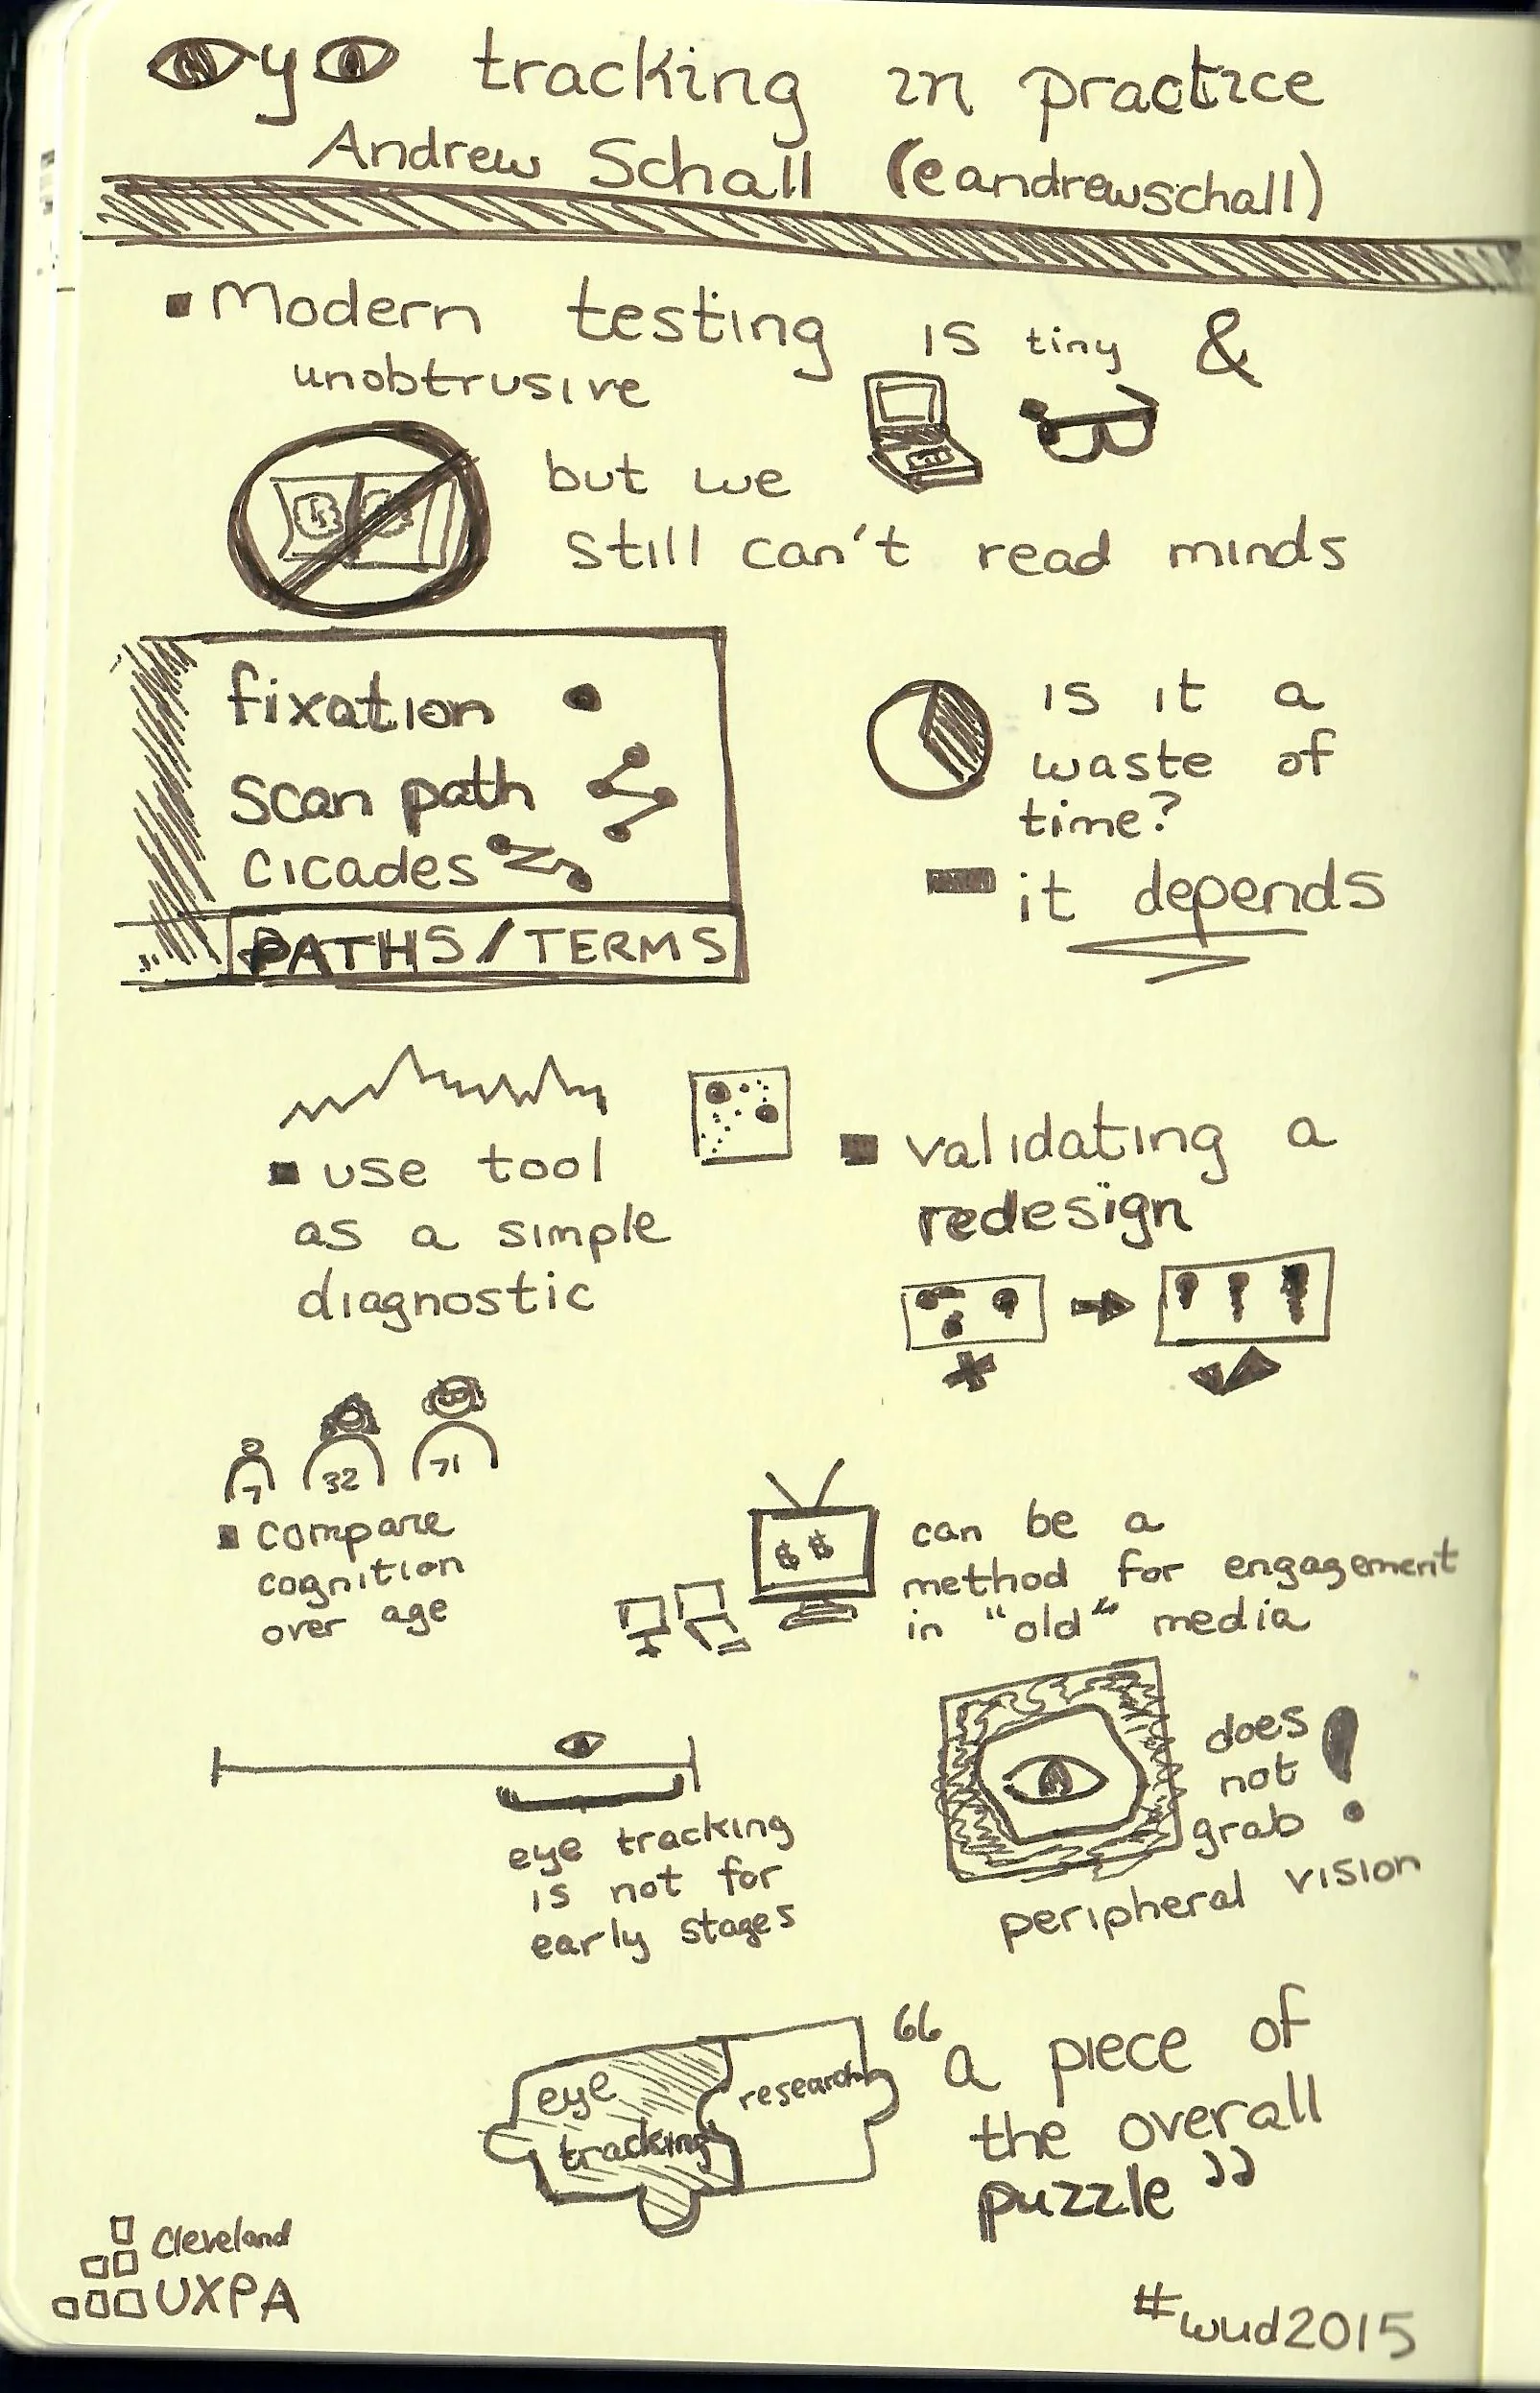 eye tracking in practice
Andrew Schall (@andrewschall)
Modern testing is tiny &
unobtrusive
but we
still can't read minds
fixation
scan path
cicades
PATHS/TERMS
is it a
waste of
time?
it depends
use tool
as a simple
diagnostic
validating a
redesign
7 32 71
compare
cognition
over age
$ $
can be a
method for engagement
in "old" media
eye tracking
is not for
early stages
does
not
grab !
peripheral vision
eye
tracking
research
“a piece of
the overall
puzzle”
Cleveland
UXPA
#wud2015